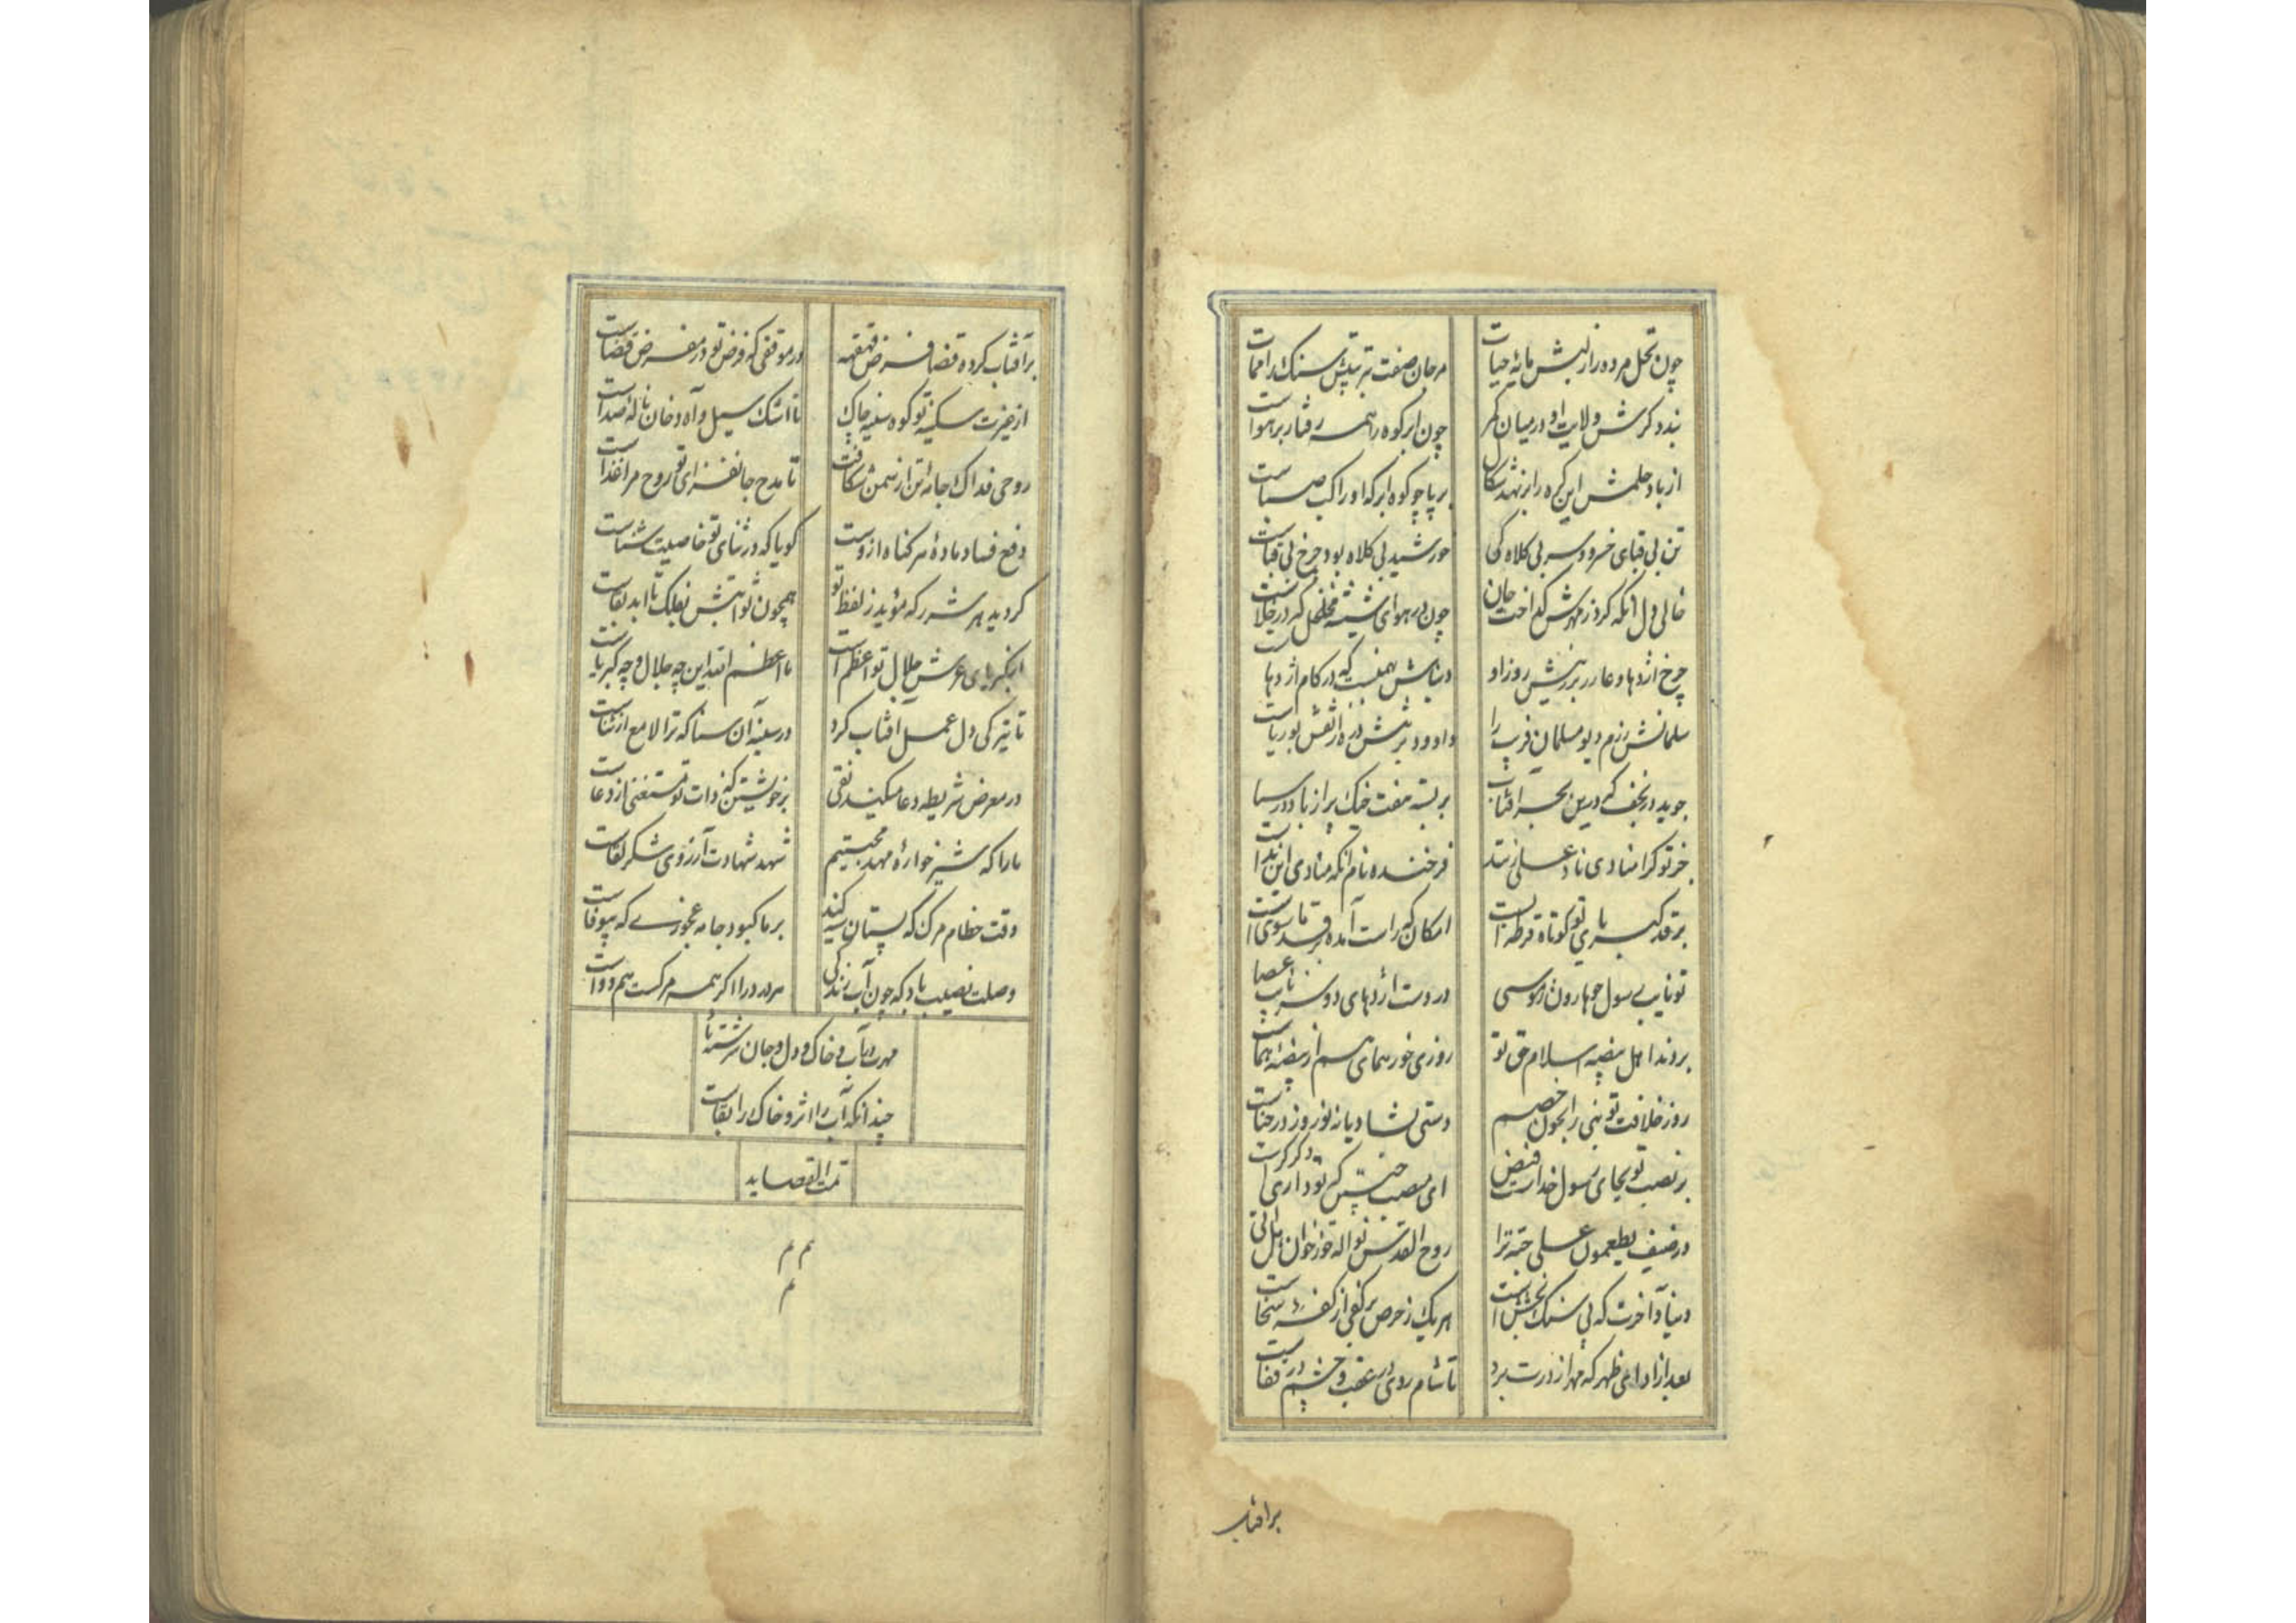 چون نخل مرده را ز لبش مایهٔ حیات مرجان صفت تربیتش سنک را نماست
بندد کرش ولایت او در میان کمر چون ابر کوه را همه رفتار بر هواست
از باد حلمش این کره را بر نهد شکال بر پا چو کوه ابر که او راکب صباست
تن بی قبای خسرو و سر بی کلاه کی خورشید بی کلاه بود چرخ بی قباست
خالی دل آنکه کرد ز مهرش کداخت جان چون در هوای شیشه که در خلاست
چرخ اژدها و غار روز او که در کام اژدهاست
سلمانش رزم دیو مسلمان فریب را داود از نقش بوریاست
جوید در نجف که درین بحر آفتاب بر بسته هفت خنک پر از باد در
جز تو کرا منادی ناد علی زنند فرخنده نام آنکه منادی این نداست
بر قد کبریای تو کوتاه قرطه ایست امکان که راست آمده بر قد ماسواست
تو نایب رسول چو هارون ز موسی در دست اژدهای دو سر نایب عصا
بردند اهل بیضه اسلام حق تو روزی خور همای هم از بیضهٔ هماست
روز خلافت تو نبی را بخون خصم دستی بشادیانه نوروز در حناست
بر نصب تو بجای رسول خداست فیض ای منصب چنین که تو داری دکر کراست
در ضیف یطعمون علی حبه ترا روح القدس نواله خور خوان هل اتی
دنیا و آخرت که بی سنک بخشش است هر یک ز حرص بر کفی از کفهٔ سخاست
بعد از ادای ظهر که مهر از درت برد تا شام روی در عقب و چشم در قفاست
برافتاب
بر آفتاب کرده قضا فرض قهقهه در موقفی که فرض تو در معرض قضاست
از غیرت سکینهٔ تو کوه سینه چاک تا اشک سیل و آه دخان ناله صداست
روحی فداک جامهٔ تن از نهمن شکافت تا مدح جانفزای تو روح مرا غذاست
دفع فساد مادهٔ هر کناه ازوست کویا که در ثنای تو خاصیت شفاست
کردید هر شرر که مؤید ز لفظ تو همچون ثوابتش بفلک تا ابد بقاست
از کبریای عرش جلال تو اعظم است ما اعظم الله این چه جلال و چه کبریاست
تا تیرکی دل عمل آفتاب کرد در سینه آن سنا که ترا لامع از ثناست
در معرض شریطه دعا میکند تقی بر خویشتن که ذات تو مستغنی از دعاست
ما را که شیرخوارهٔ مهد محبتیم شهد شهادت آرزوی شکر لقاست
وقت فطام مرک که پستان سیه کند بر ما کبود جامه عجوزی که بیوفاست
وصلت نصیب باد که چون آب زندکی هر درد را اکر همه مرکست هم دواست
مهرت بآب و خاک و دل و جان سرشته باد
چندانکه آب را اثر و خاک را بقاست
تمت القصاید
م م
م